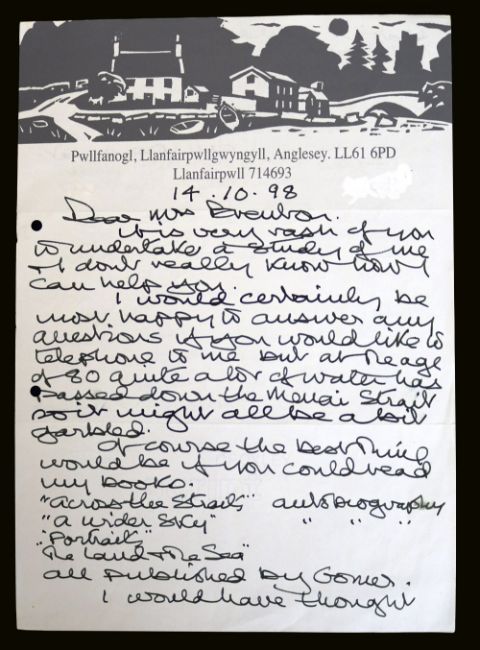 Pwllfanogl, Llanfairpwllgwyngyll, Anglesey. LL61 6PD
Llanfairpwll 714693
14.10.98
Dear Mrs
it is very rash of you
to undertake a study of me
I don't really know how I
can help you.
I would certainly be
most happy to answer any
questions if you would like to
telephone to me but at the age
of 80 quite a lot of water has
passed down the Menai Strait
so it might all be a bit
garbled.
Of course the best thing
would be if you could read
my books.
"Across the Straits" autobiography
"A wider Sky" " " "
"Portraits"
"The Land & The Sea"
all published by Gomer.
I would have thought